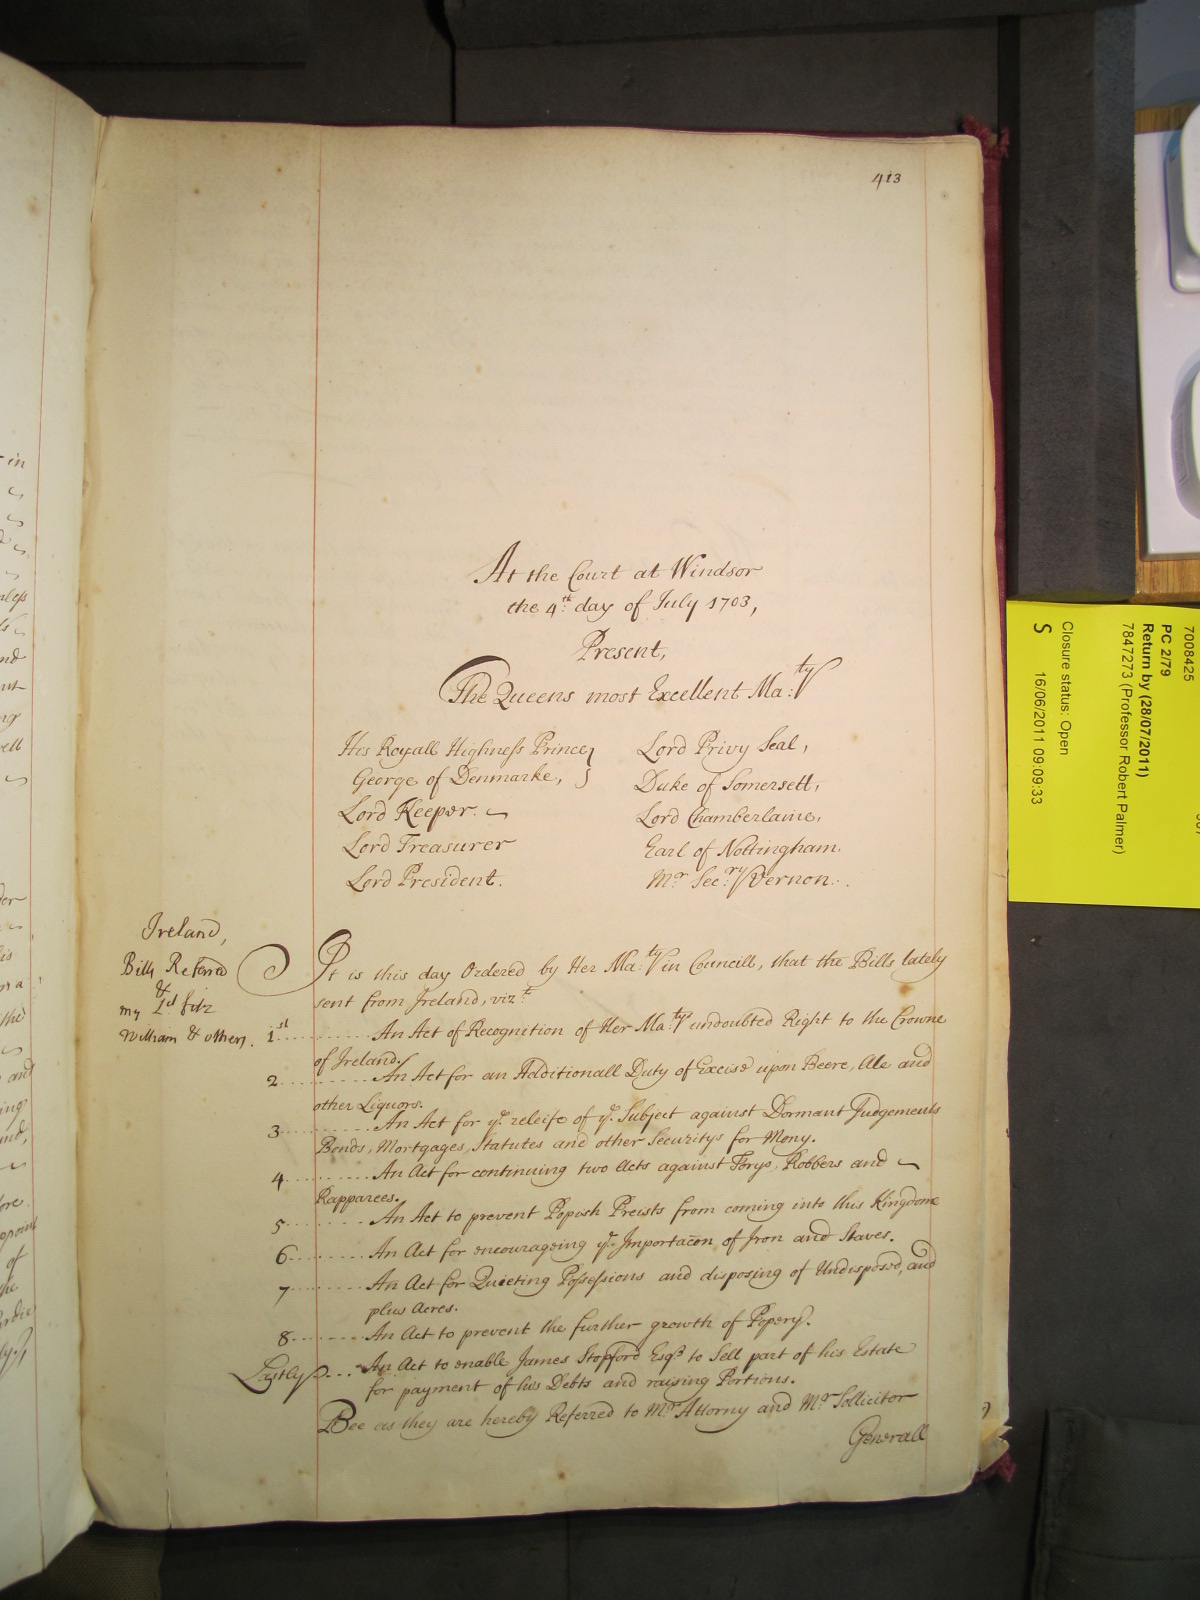 413
At the Court at Windsor
the 4th day of July 1703,
Present,
The Queens most Excellent Ma:ty
His Royall Highness Prince
George of Denmarke,
Lord Keeper
Lord Treasurer
Lord President.
Lord Privy Seal,
Duke of Somersett,
Lord Chamberlaine,
Earl of Nottingham.
Mr Sec:ry Vernon.
Ireland,
Bills Referred
&
my Ld fitz
William & others.
It is this day Ordered by Her Ma:ty in Councill, that the Bills lately
sent from Ireland, vizt
1st An Act of Recognition of Her Ma:tys undoubted Right to the Crowne
of Ireland.
2 An Act for an Additionall Duty of Excise upon Beere, Ale and
other Liquors.
3 An Act for ye releife of ye Subject against Dormant Judgements
Bonds, Mortgages, Statutes and other Securitys for Mony.
4 An Act for continuing two Acts against Torys, Robbers and
Rapparees.
5 An Act to prevent Popish Preists from coming into this Kingdome
6 An Act for encourageing ye Importacon of Iron and Staves.
7 An Act for Quieting Possessions and disposing of Undisposed, and
plus Acres.
8 An Act to prevent the further growth of Popery.
Lastly An Act to enable James Stopford Esqr to Sell part of his Estate
for payment of his Debts and raising Portions.
Bee as they are hereby Referred to Mr Attorny and Mr Sollicitor
Generall
7008425
PC 2/79
Return by (28/07/2011)
7847273 (Professor Robert Palmer)
Closure status: Open
S 16/06/2011 09:09:33